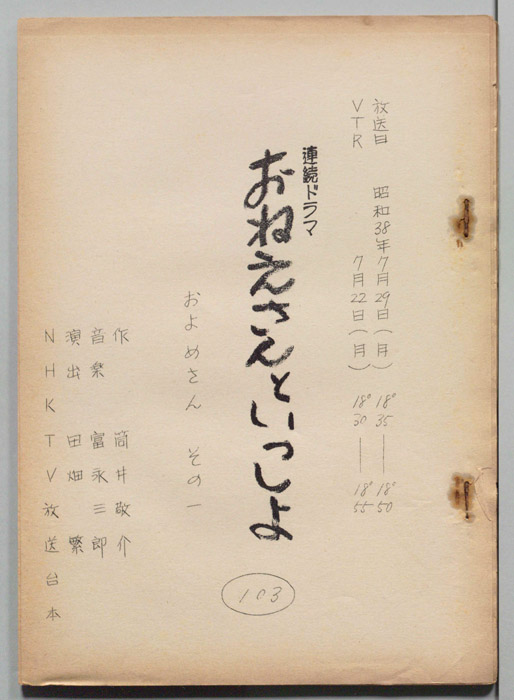 放送日 昭和38年7月29日(月) 18°35—18°50
VTR 7月22日(月) 18°30—18°55
連続ドラマ
おねえさんといっしょ
およめさん その一
103
作 筒井敬介
音楽 富永三郎
演出 田畑繁
NHKTV放送台本